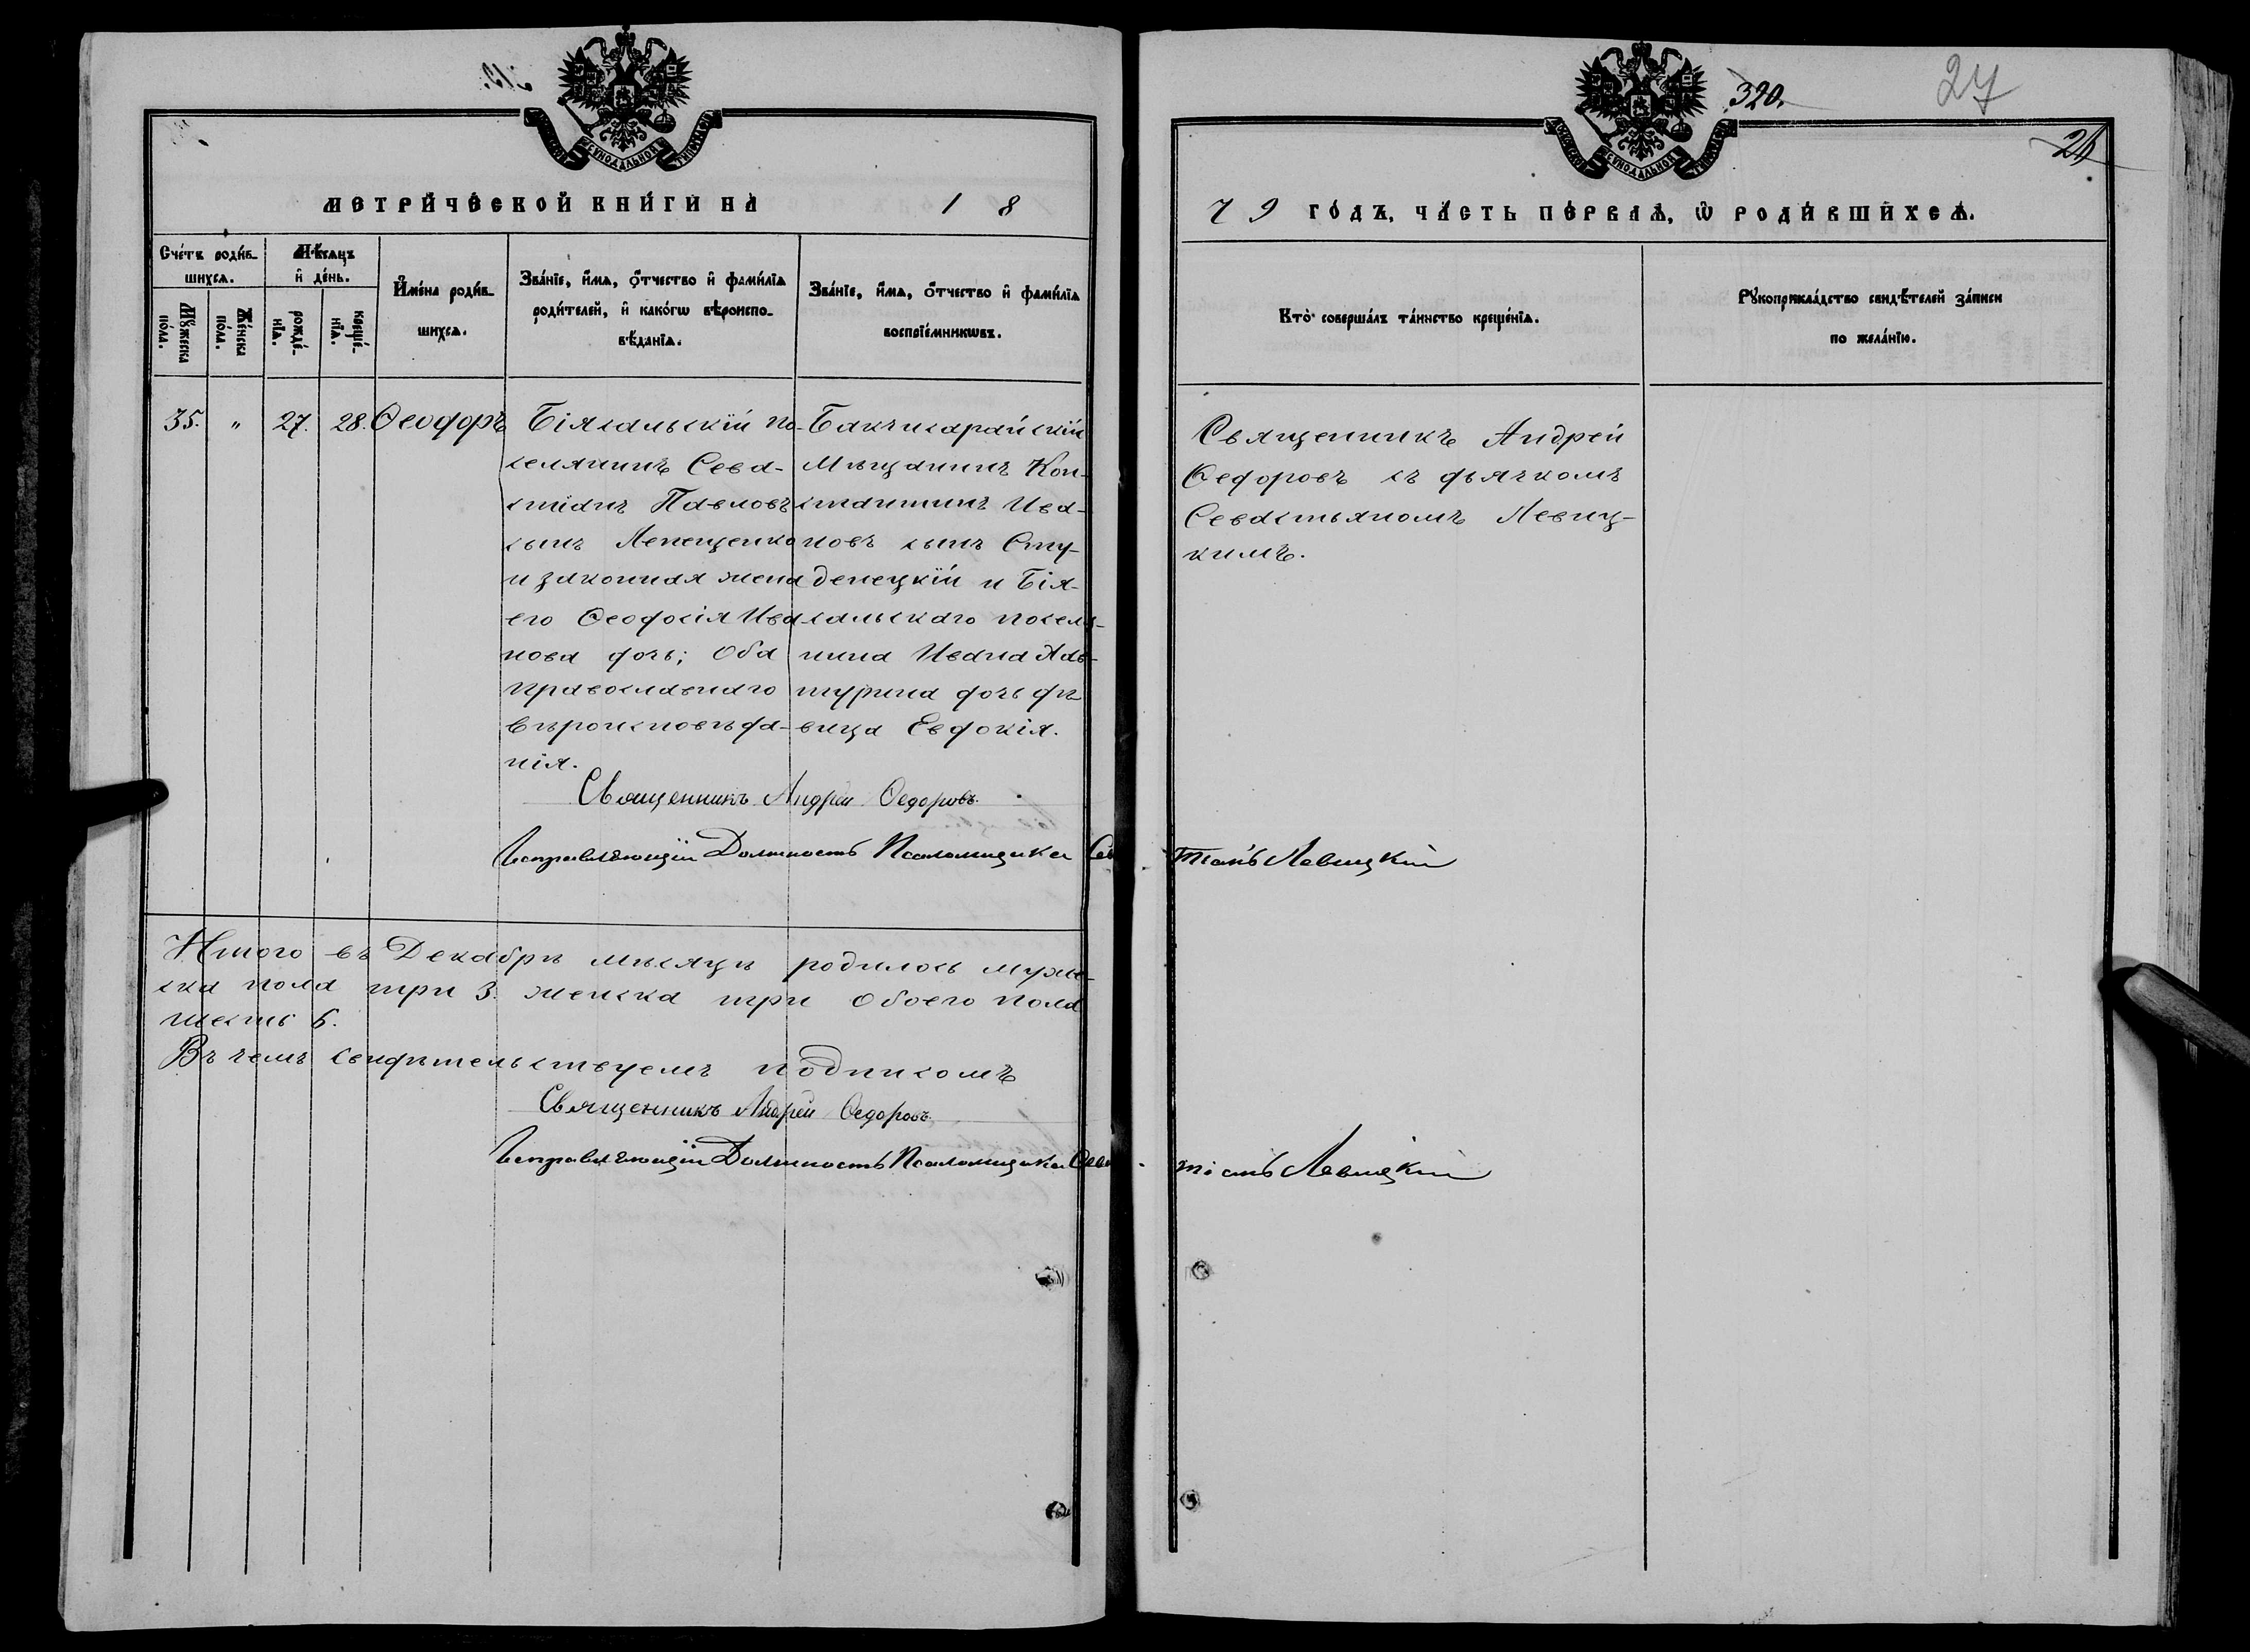 320.
27
26
МОСКОВСКОЙ СѴНОДАЛЬНОЙ ТИПОГРАФІИ
МЕТРИ́ЧЕСКОЙ КНИ́ГИ НА̀ 18
79 ГО́ДЪ, ЧА́СТЬ ПЕ́РВАѦ, Ѡ҆ РОДИ́ВШИХСѦ.
Сче́тъ роди́в-
шихсѧ.
Мѣ́сѧцъ
и҆ де́нь.
Мꙋ́жеска
по́ла.
Же́нска
по́ла.
рожде́-
нїѧ.
креще́-
нїѧ.
И҆мена̀ роди́в-
шихсѧ.
Зва́нїе, и҆́мѧ, ѻ҆́тчество и҆ фами́лїѧ
роди́телей, и҆ како́гѡ вѣроиспо-
вѣ́данїѧ.
Зва́нїе, и҆́мѧ, ѻ҆́тчество и҆ фами́лїѧ
воспрїе́мникѡвъ.
Кто̀ соверша́лъ та́инство креще́нїѧ.
Рꙋкоприкла́дство свидѣ́телей за́писи
по жела́нїю.
35. " 27. 28. Ѳеодоръ
Біясальскій по-
селянинъ Сева-
стіанъ Павловъ
сынъ Лепещенко
и законная жена
его Ѳеодосія Ива-
нова дочь; Оба
православнаго
вѣроисповѣда-
нія.
Бакчисарайскій
Мѣщанинъ Кон-
стантинъ Ива-
новъ сынъ Сту-
денецкій и Бія-
сальскаго поселя-
нина Ивана
дочь дѣ-
вица Евдокія.
Священникъ Андрей
Ѳедоровъ съ дьячкомъ
Севастьяномъ Левиц-
кимъ.
Священникъ Андрей Ѳедоровъ.
Исправляющій Должность Псаломщика Севастіанъ Левицкій
Итого въ Декабрѣ мѣсяцѣ родилось муже-
ска пола три 3. женска три Обоего пола
шесть 6.
Въ чемъ свидѣтельствуемъ подписомъ
Священникъ Андрей Ѳедоровъ.
Исправляющій Должность Псаломщика Севастіанъ Левицкій